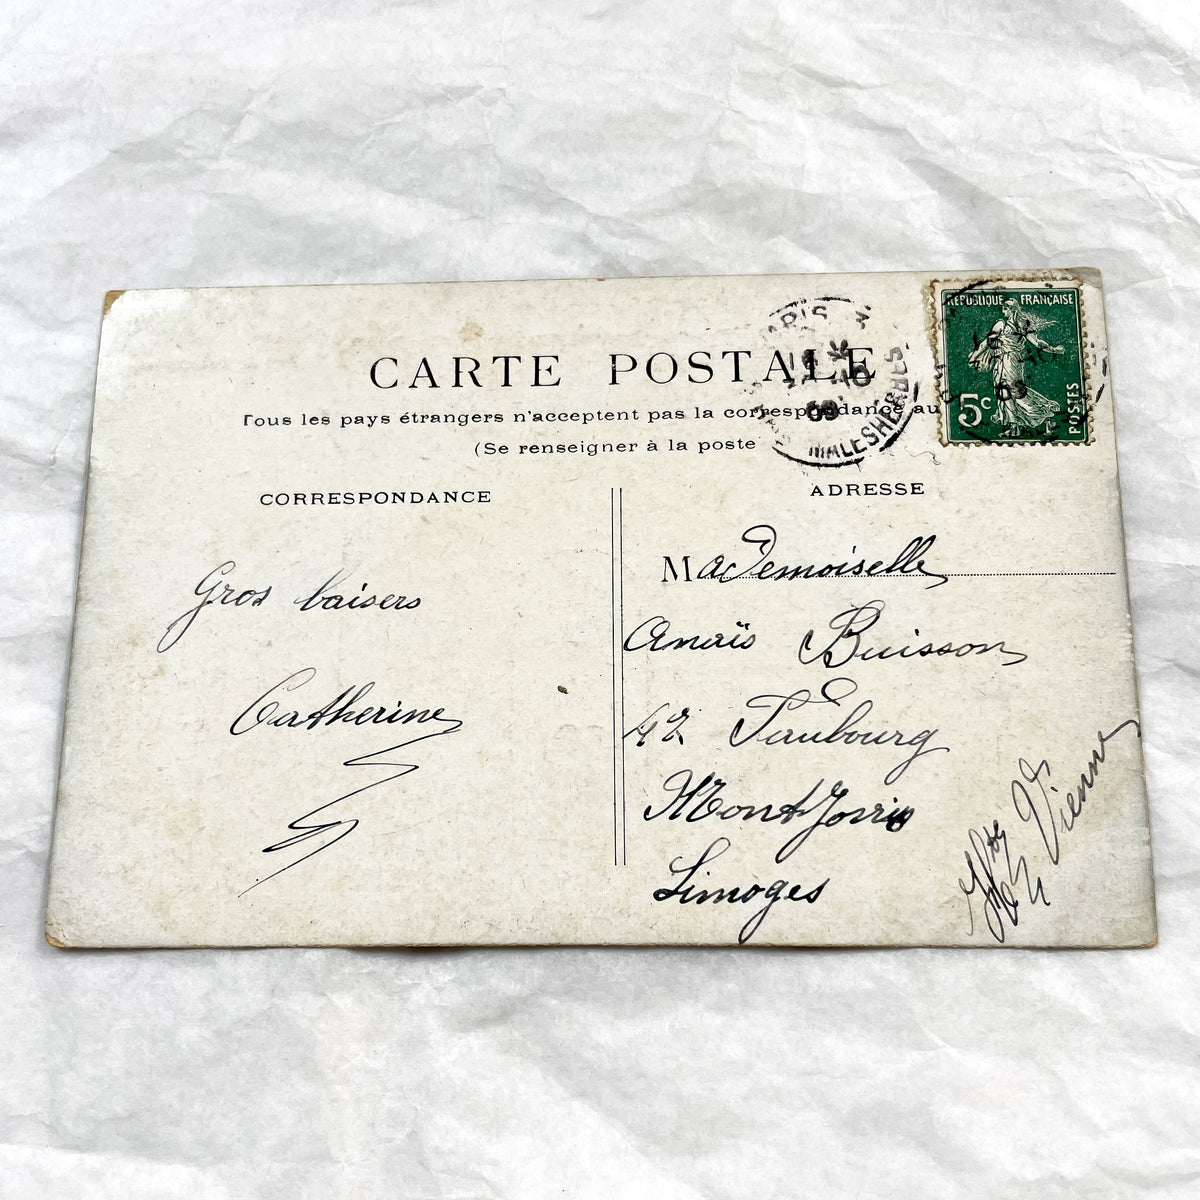 CARTE POSTALE
Tous les pays étrangers n'acceptent pas la correspondance au
(Se renseigner à la poste
RÉPUBLIQUE FRANÇAISE
5c
POSTES
PARIS
09
MALESHERBES
CORRESPONDANCE
ADRESSE
Gros baisers
Catherine
Mademoiselle
Anaïs Buisson
42 Faubourg
Montjovis
Limoges
Hte Vienne